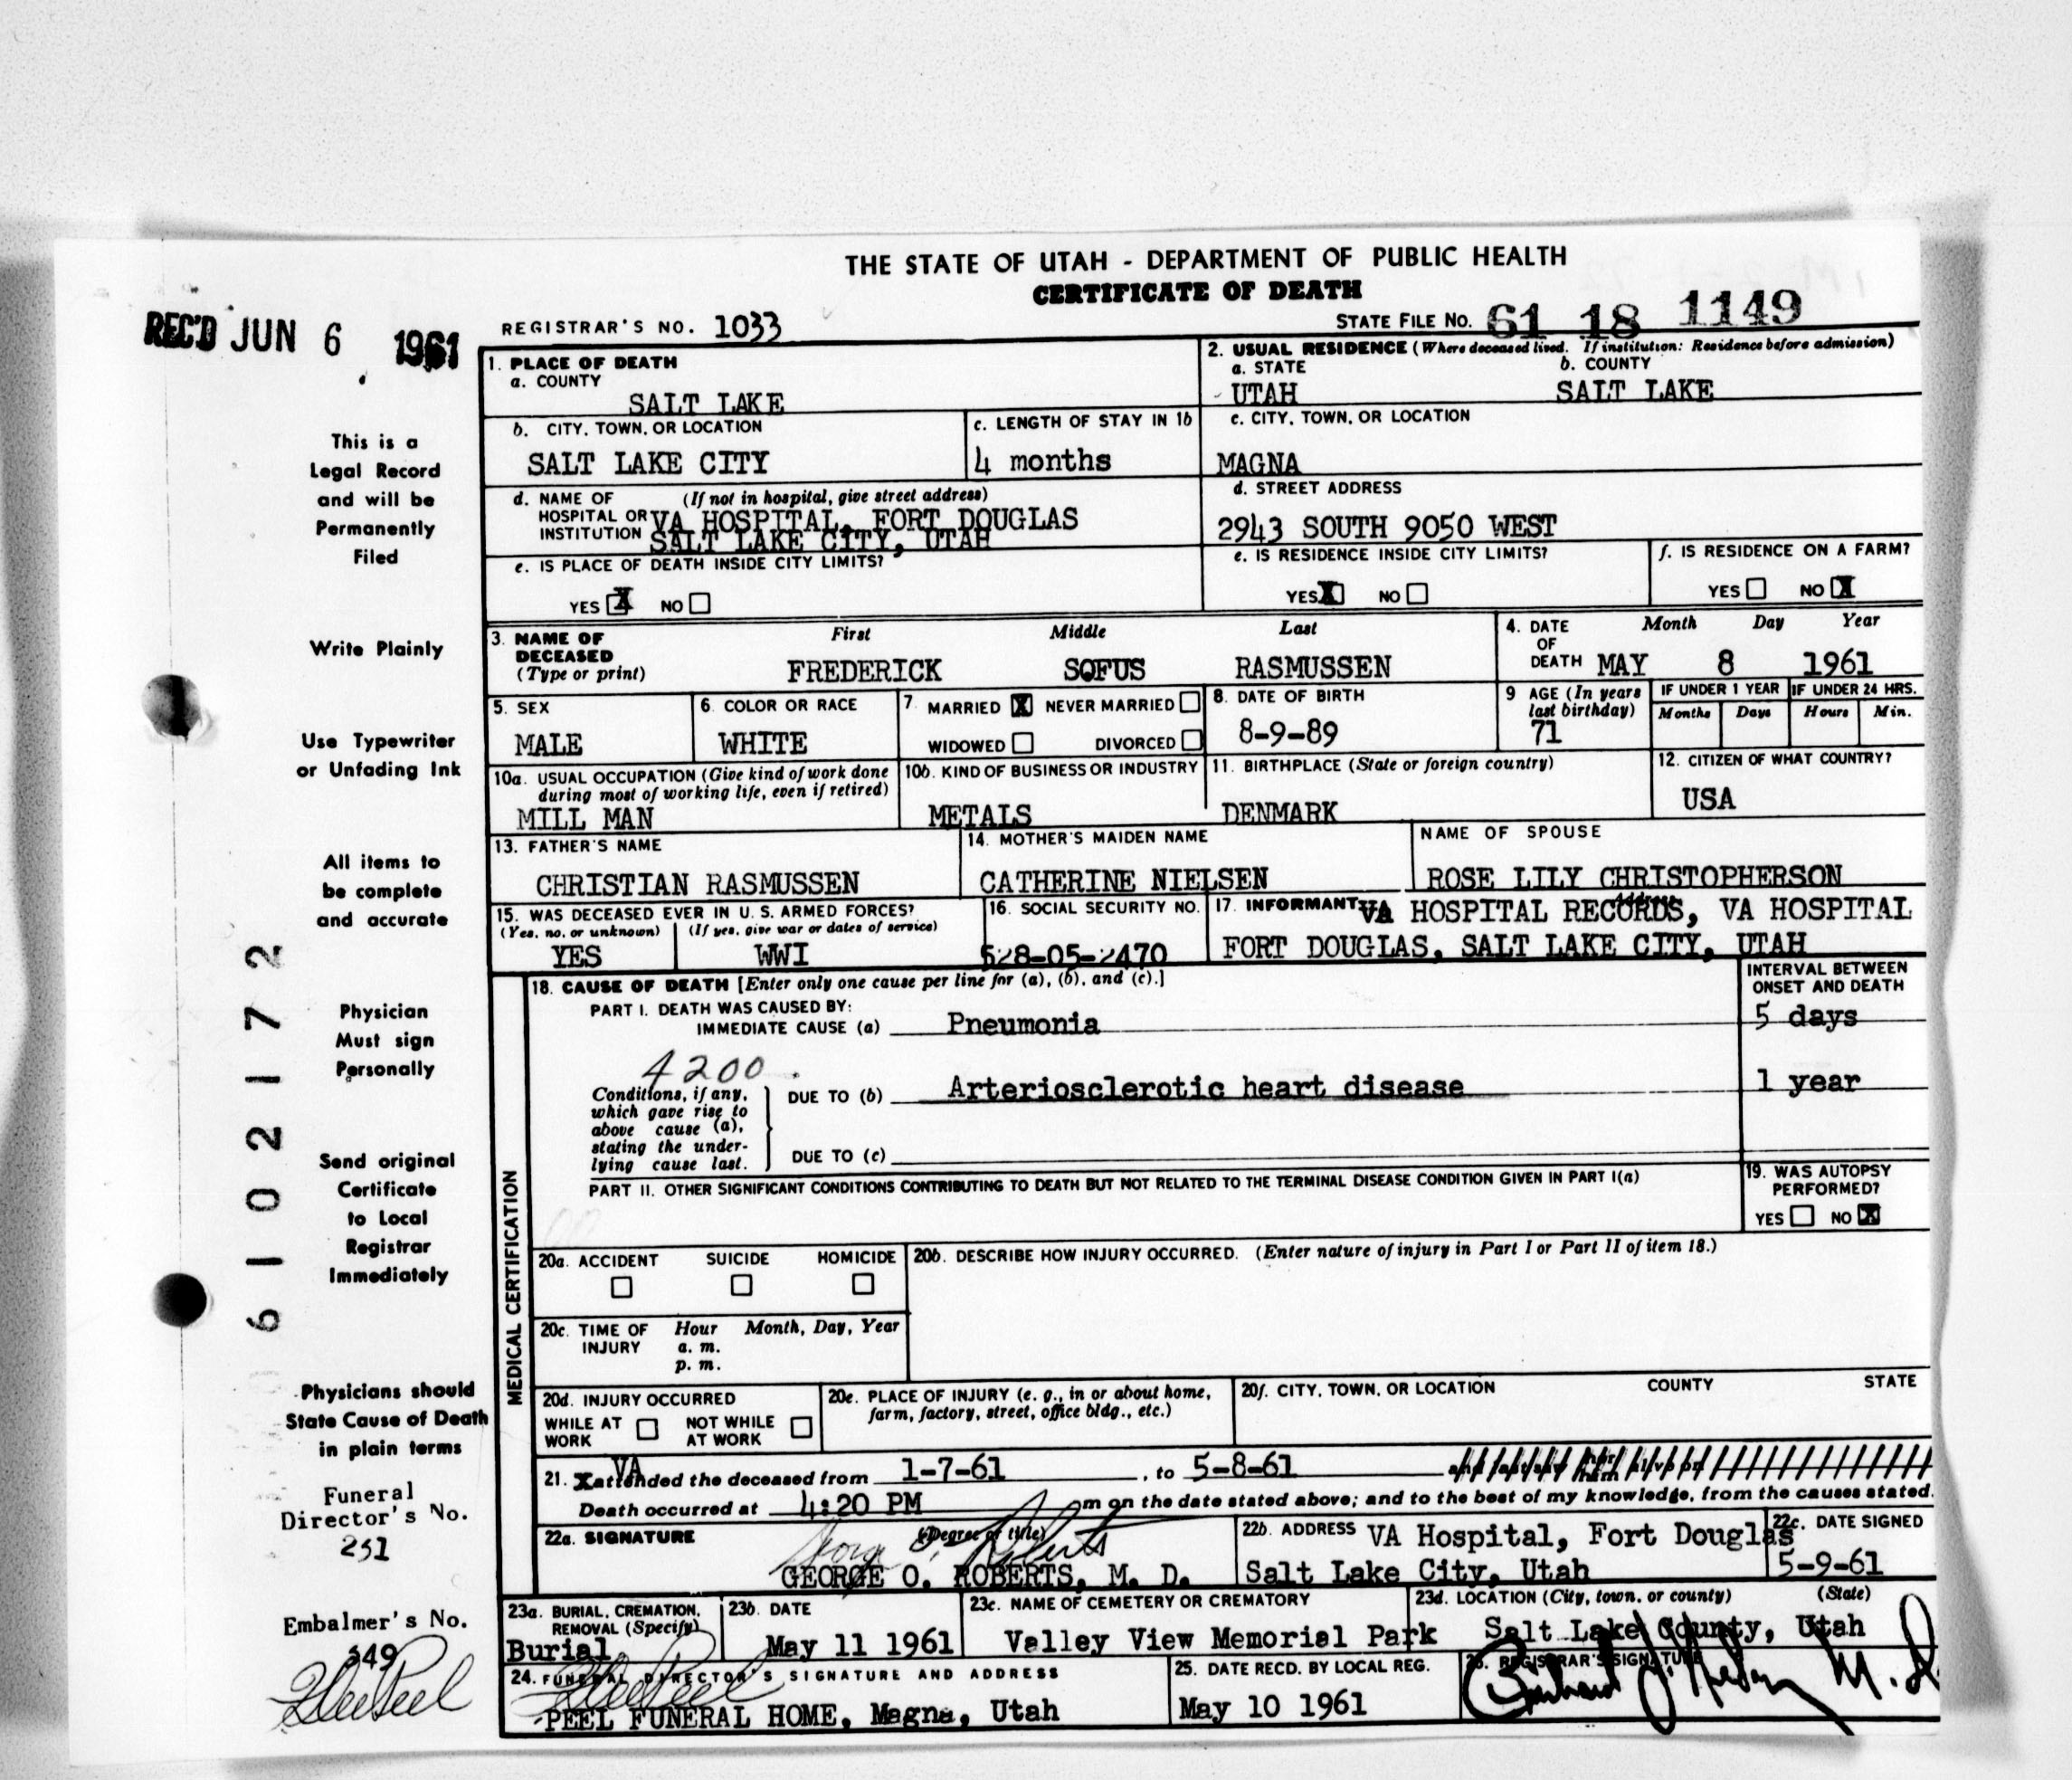 THE STATE OF UTAH - DEPARTMENT OF PUBLIC HEALTH
CERTIFICATE OF DEATH
REC'D JUN 6 1961
REGISTRAR'S NO. 1033
STATE FILE NO. 61 18 1149
1. PLACE OF DEATH
a. COUNTY
SALT LAKE
2. USUAL RESIDENCE (Where deceased lived. If institution: Residence before admission)
a. STATE b. COUNTY
UTAH SALT LAKE
b. CITY, TOWN, OR LOCATION
SALT LAKE CITY
c. LENGTH OF STAY IN 1b
4 months
c. CITY, TOWN, OR LOCATION
MAGNA
d. NAME OF (If not in hospital, give street address)
HOSPITAL OR VA HOSPITAL, FORT DOUGLAS
INSTITUTION SALT LAKE CITY, UTAH
d. STREET ADDRESS
2943 SOUTH 9050 WEST
e. IS PLACE OF DEATH INSIDE CITY LIMITS?
YES X NO
e. IS RESIDENCE INSIDE CITY LIMITS?
YES X NO
f. IS RESIDENCE ON A FARM?
YES NO X
3. NAME OF First Middle Last
DECEASED
(Type or print) FREDERICK SOFUS RASMUSSEN
4. DATE Month Day Year
OF
DEATH MAY 8 1961
5. SEX
MALE
6. COLOR OR RACE
WHITE
7. MARRIED X NEVER MARRIED
WIDOWED DIVORCED
8. DATE OF BIRTH
8-9-89
9 AGE (In years
last birthday)
71
IF UNDER 1 YEAR IF UNDER 24 HRS.
Months Days Hours Min.
10a. USUAL OCCUPATION (Give kind of work done
during most of working life, even if retired)
MILL MAN
10b. KIND OF BUSINESS OR INDUSTRY
METALS
11. BIRTHPLACE (State or foreign country)
DENMARK
12. CITIZEN OF WHAT COUNTRY?
USA
13. FATHER'S NAME
CHRISTIAN RASMUSSEN
14. MOTHER'S MAIDEN NAME
CATHERINE NIELSEN
NAME OF SPOUSE
ROSE LILY CHRISTOPHERSON
15. WAS DECEASED EVER IN U. S. ARMED FORCES?
(Yes, no, or unknown) (If yes, give war or dates of service)
YES WWI
16. SOCIAL SECURITY NO.
528-05-2470
17. INFORMANT Address
VA HOSPITAL RECORDS, VA HOSPITAL
FORT DOUGLAS, SALT LAKE CITY, UTAH
MEDICAL CERTIFICATION
18. CAUSE OF DEATH [Enter only one cause per line for (a), (b), and (c).]
INTERVAL BETWEEN
ONSET AND DEATH
PART I. DEATH WAS CAUSED BY:
IMMEDIATE CAUSE (a) Pneumonia 5 days
4200
Conditions, if any,
which gave rise to
above cause (a),
stating the under-
lying cause last.
DUE TO (b) Arteriosclerotic heart disease 1 year
DUE TO (c)
PART II. OTHER SIGNIFICANT CONDITIONS CONTRIBUTING TO DEATH BUT NOT RELATED TO THE TERMINAL DISEASE CONDITION GIVEN IN PART I(a)
19. WAS AUTOPSY
PERFORMED?
YES NO X
20a. ACCIDENT SUICIDE HOMICIDE
20b. DESCRIBE HOW INJURY OCCURRED. (Enter nature of injury in Part I or Part II of item 18.)
20c. TIME OF Hour Month, Day, Year
INJURY a. m.
p. m.
20d. INJURY OCCURRED
WHILE AT NOT WHILE
WORK AT WORK
20e. PLACE OF INJURY (e. g., in or about home,
farm, factory, street, office bldg., etc.)
20f. CITY, TOWN, OR LOCATION COUNTY STATE
21. VA attended the deceased from 1-7-61, to 5-8-61
Death occurred at 4:20 PM m on the date stated above; and to the best of my knowledge, from the causes stated.
22a. SIGNATURE (Degree or title)
George O. Roberts
GEORGE O. ROBERTS, M. D.
22b. ADDRESS VA Hospital, Fort Douglas
Salt Lake City, Utah
22c. DATE SIGNED
5-9-61
23a. BURIAL, CREMATION,
REMOVAL (Specify)
Burial
23b. DATE
May 11 1961
23c. NAME OF CEMETERY OR CREMATORY
Valley View Memorial Park
23d. LOCATION (City, town, or county) (State)
Salt Lake County, Utah
24. FUNERAL DIRECTOR'S SIGNATURE AND ADDRESS
PEEL FUNERAL HOME, Magna, Utah
25. DATE RECD. BY LOCAL REG.
May 10 1961
26. REGISTRAR'S SIGNATURE
M. D.
This is a
Legal Record
and will be
Permanently
Filed
Write Plainly
Use Typewriter
or Unfading Ink
All items to
be complete
and accurate
Physician
Must sign
Personally
Send original
Certificate
to Local
Registrar
Immediately
Physicians should
State Cause of Death
in plain terms
Funeral
Director's No.
251
Embalmer's No.
349
6102172